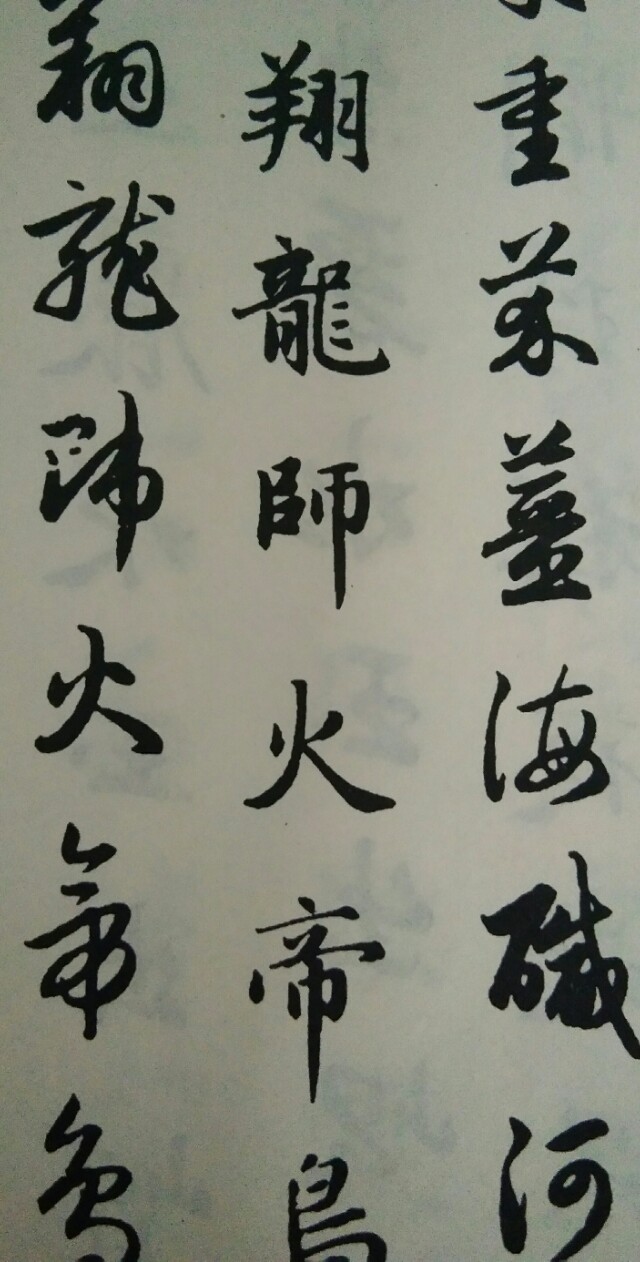 重芥薑海醎河
翔龍師火帝鳥
翔龍師火帝鳥